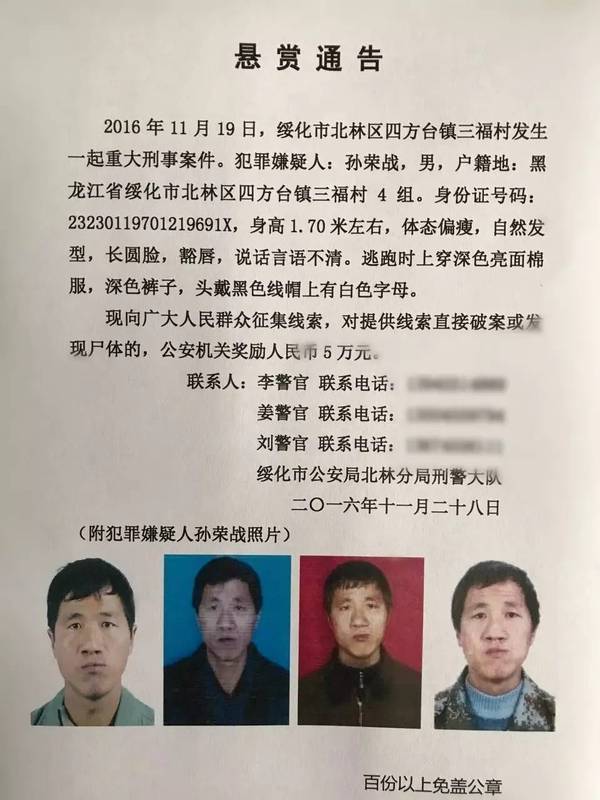 悬赏通告
2016年11月19日，绥化市北林区四方台镇三福村发生
一起重大刑事案件。犯罪嫌疑人：孙荣战，男，户籍地：黑
龙江省绥化市北林区四方台镇三福村 4 组。身份证号码：
23230119701219691X，身高1.70米左右，体态偏瘦，自然发
型，长圆脸，豁唇，说话言语不清。逃跑时上穿深色亮面棉
服，深色裤子，头戴黑色线帽上有白色字母。
现向广大人民群众征集线索，对提供线索直接破案或发
现尸体的，公安机关奖励人民币5万元。
联系人：李警官 联系电话：
姜警官 联系电话：
刘警官 联系电话：
绥化市公安局北林分局刑警大队
二〇一六年十一月二十八日
（附犯罪嫌疑人孙荣战照片）
百份以上免盖公章